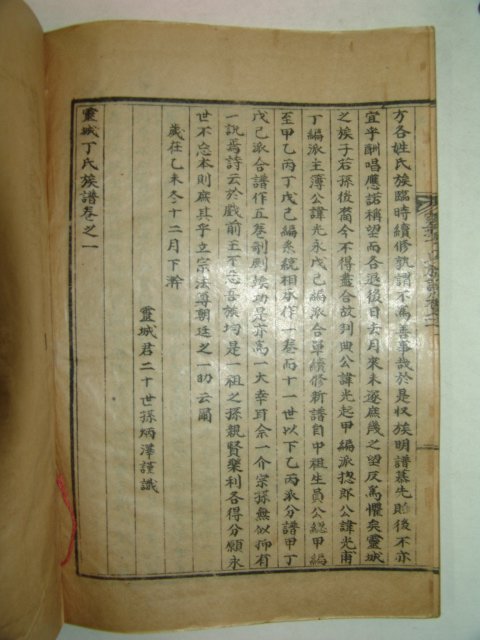 方各姓氏族臨時續修孰謂不爲善事哉於是収族明譜慕先貽後不亦
宜乎酬唱應諾稱望而各退後日去月來未遂庶幾之望反爲懼矣靈城
之族子若孫後裔今不得盡合故判典公諱光起甲編派摠郎公諱光甫
丁編派主簿公諱光永戊己編派合單續修新譜自中祖生員公総甲編
至甲乙丙丁戊己編系統相承作一卷而十一世以下乙丙派分譜甲丁
戊己派合譜作五卷剞劂竣功是亦爲一大幸耳余一介宗孫無似抑有
一說焉詩云於戲前王不忘吾族均是一祖之孫親賢樂利各得分願永
世不忘本則庶其乎立宗法尊朝廷之一助云爾
歲在乙未冬十二月下澣
靈城君二十世孫炳澤謹識
靈城丁氏族譜卷之一